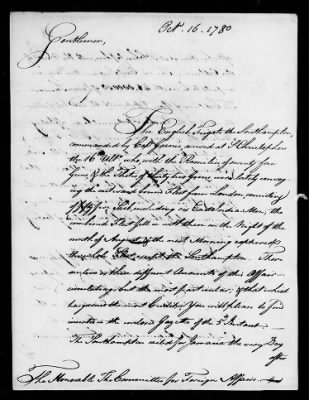 Oct. 16. 1780
Gentlemen,
The English Frigate the Southampton,
commanded by Capt. Garnier arrived at St. Christophers
the 16th Ulto. who, with the Ramillies of seventy four
Guns, & the Thetis of thirty two Guns, was lately convoy-
ing the outward bound Fleet from London, consisting
of fifty five Sail, including 5 East India Men, the
combined Fleet fell in with them on the Night of the
of August & the next Morning captured
the whole Fleet, except the Southampton. There
are two or three different Accounts of this Affair
circulating, but the most particular, & that which
has gained the most Credit, You will please to find
inserted in the inclosed Gazette of the 5th Instant.
The Southampton sailed for Jamaica the very Day
after
The Honorable The Committee for Foreign Affairs.